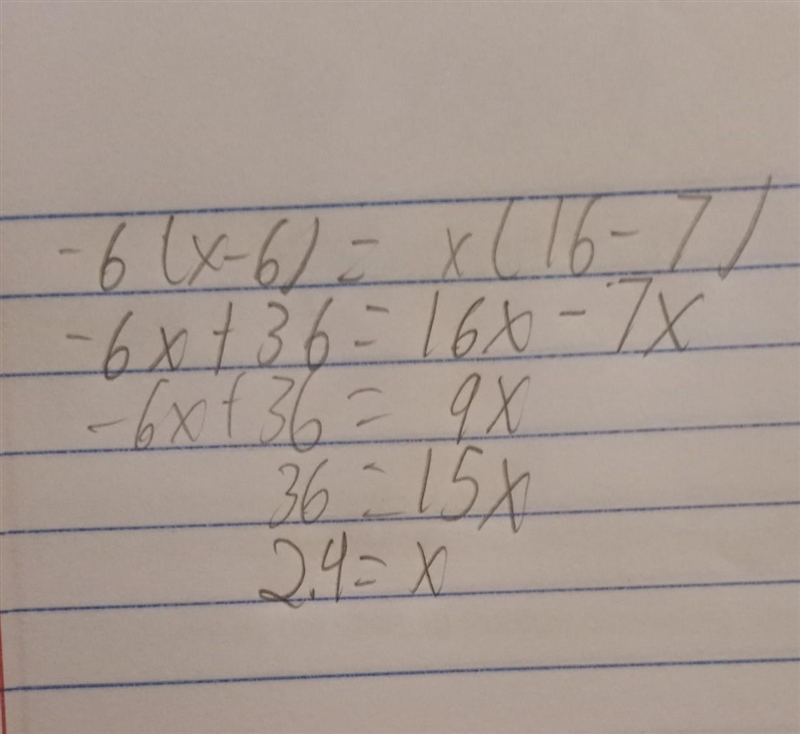 -6(x-6) = x(16-7)
-6x+36 = 16x-7x
-6x+36 = 9x
36 = 15x
2.4 = x